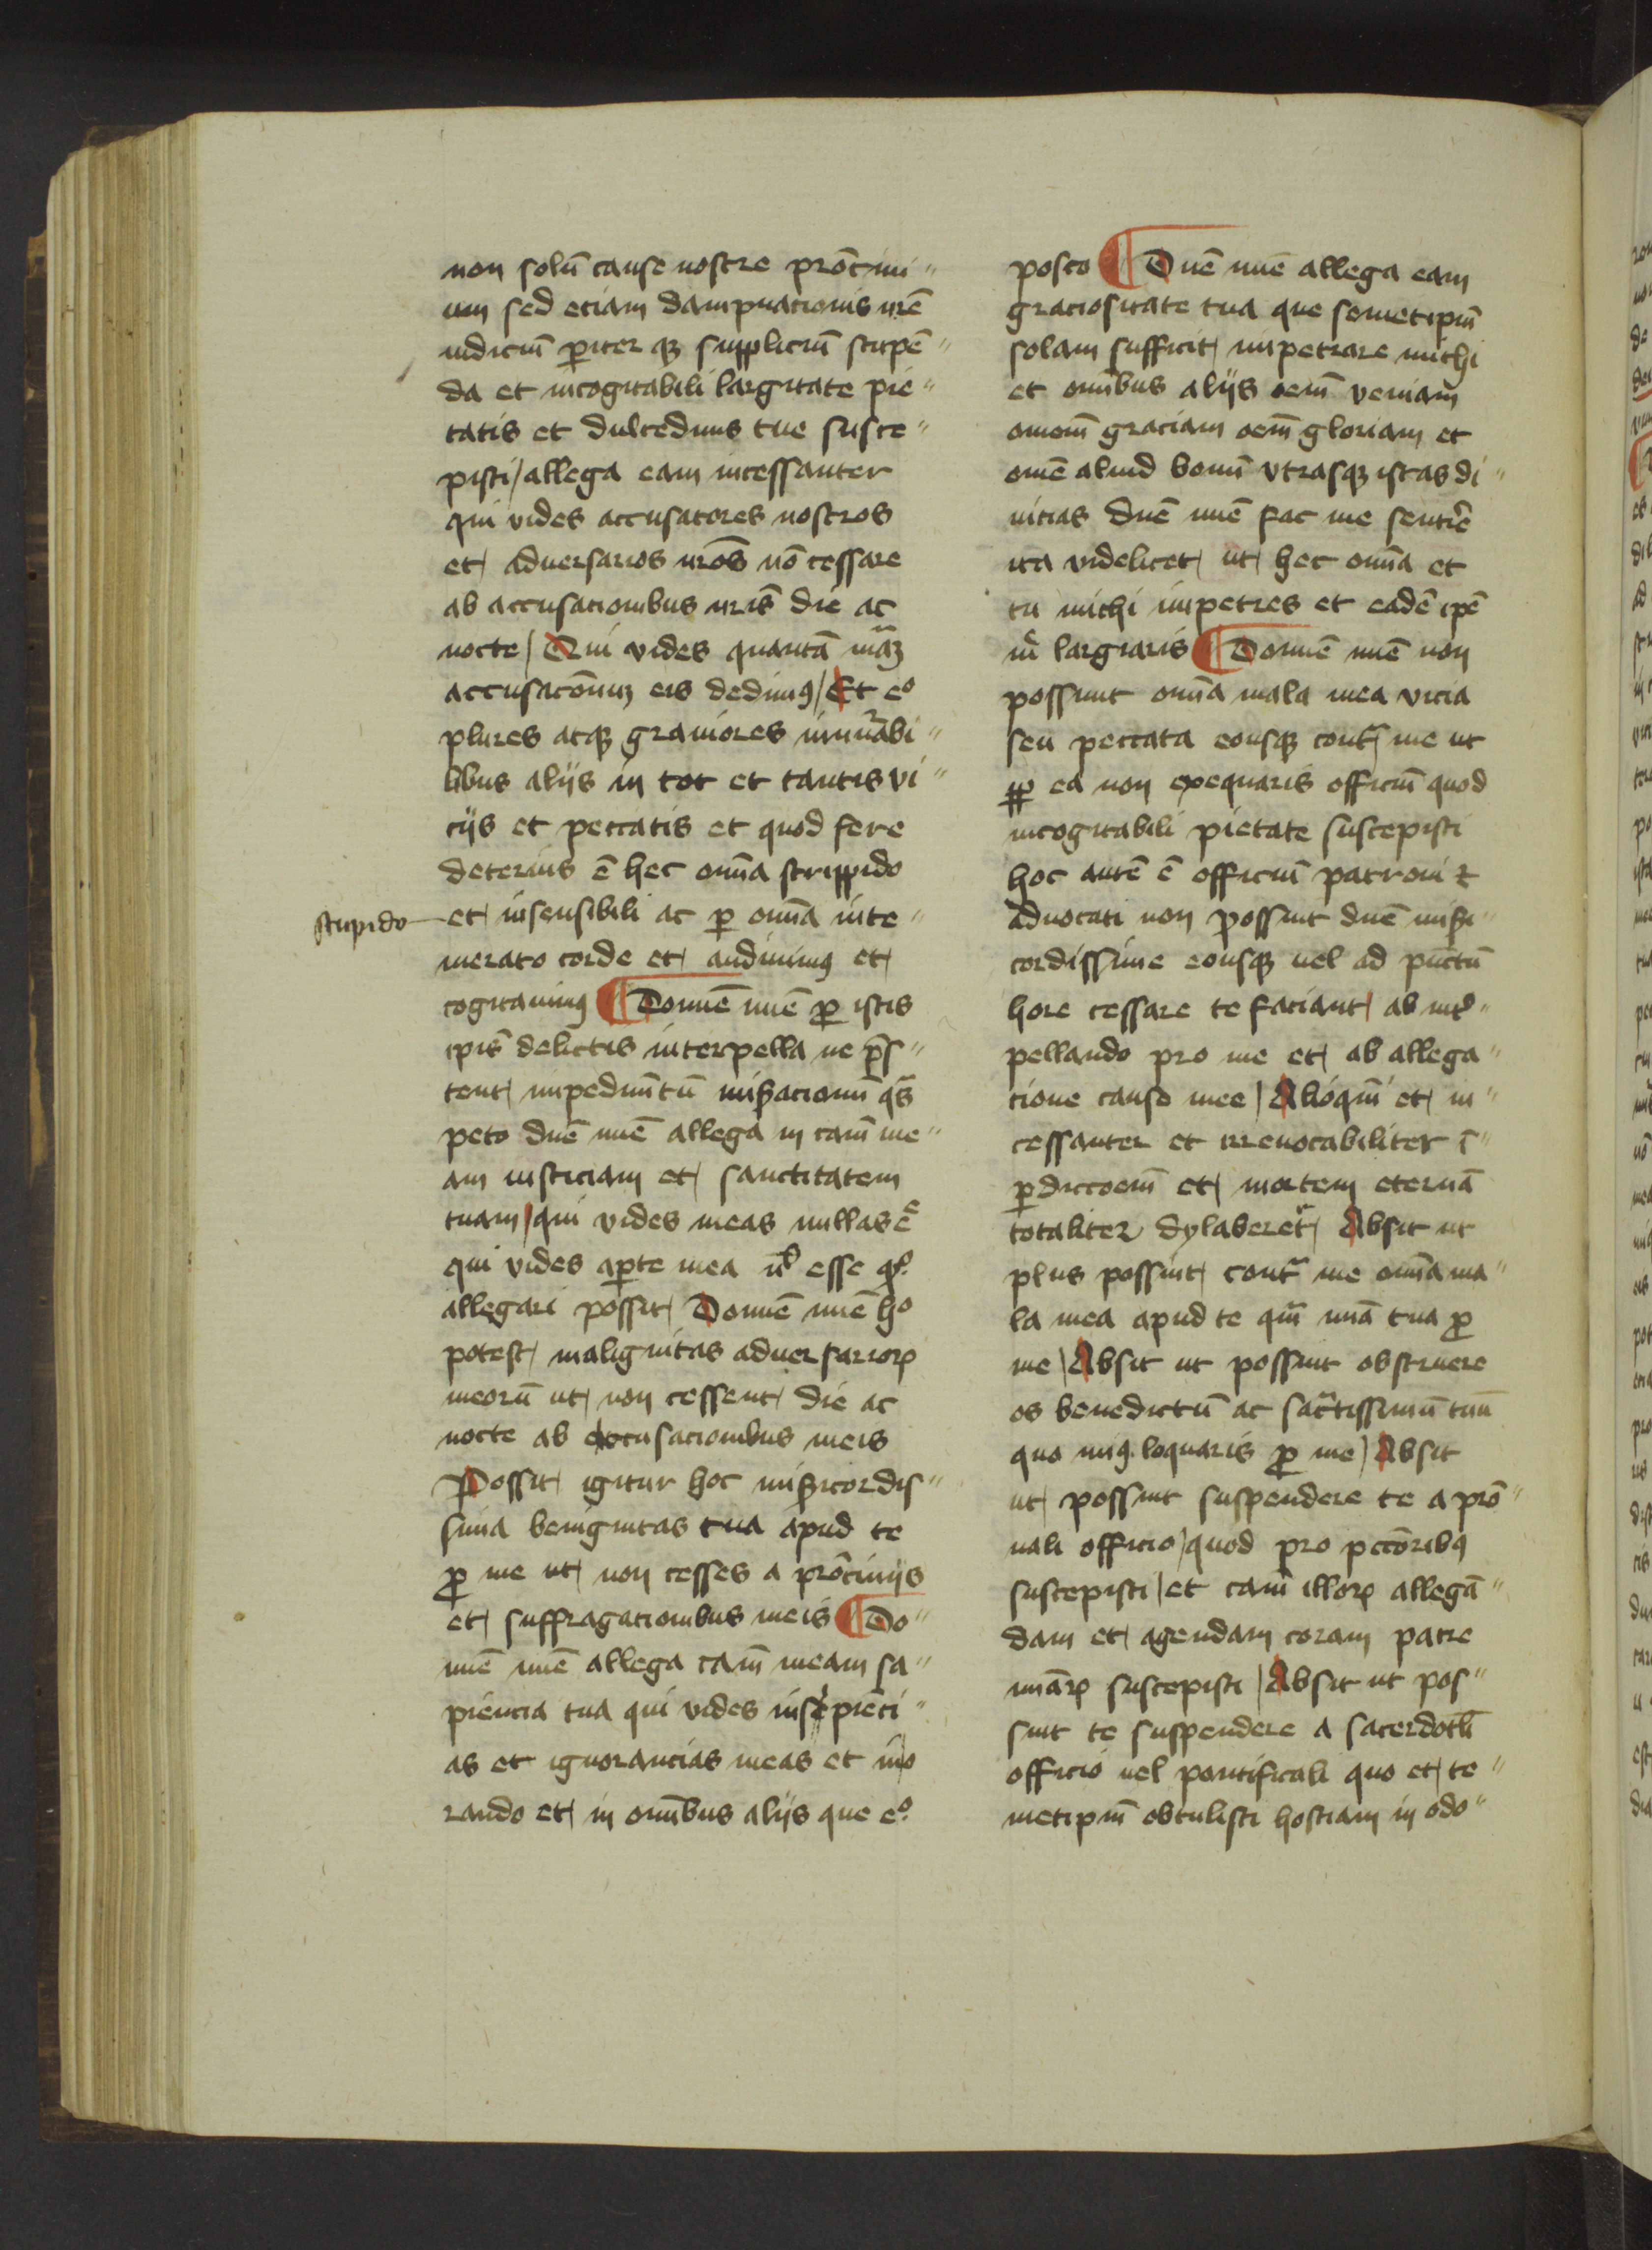 non solū cause nostre prōcini"
um sed etiam dampnationis nrē
iudiciū pariter qꝫ suppliciū stupē"
da et incogitabili largitate pie"
tatis et dulcedinis tue susce"
pisti / allega eam incessanter
qui vides accusatores nostros
et adversarios nrōs nō cessare
ab accusationibus nrīs die ac
nocte / Qui vides quantā māꝫ
accusacōnuꝫ eis dedimꝰ / Et eº
plures atqꝫ graviores innūabi"
libus aliis in tot et tantis vi"
ciis et peccatis et quod fere
deterius ē hec omīa stuppido
stupido
et insensibili ac ꝑ omīa inte"
merato corde et audivimꝰ et
cogitavimꝰ ¶ Domīe mīe ꝓ istis
ipīs delictis interpella ne p̄s"
tent impedimētū misacionū qs̄
peto dnē mīe allega in cām me"
am iusticiam et sanctitatem
tuam / qui vides meas nullas eē
qui vides aperte mea nl̄ esse qº
allegari possit / Domīe mīe hº
potest malignitas adversarioꝝ
meorū ut non cessent die ac
nocte ab accusacionibus meis
Possit igitur hoc miꝫicordis"
sima benignitas tua apud te
ꝓ me ut non cesses a prōciniis
et suffragationibus meis ¶ Do"
mīe mīe allega cām meam sa"
piencia tua qui vides insipiēti"
as et ignorantias meas et in o
rando et in omībus aliis que eº
posco ¶ Dnē mīe allega eam
graciositate tua que semetipm̄
solam sufficit impetrare michi
et omībus aliis oēm veniam
omnem̄ graciam oēm gloriam et
omē aliud bonū utrasqꝫ istas di"
vitias dnē mīe fac me sentīre
ita videlicet ut hec omīa et
tu michi impetres et eadē ipē
m̄ largiaris ¶ Domīe mīe non
possunt omīa mala mea vicia
seu peccata eousqꝫ contr̄ me ut
ꝓꝑ ea non exequaris officiū quod
incogitabili pietate suscepisti
hoc autē ē officiū patroni ⁊
advocati non possunt dnē miꝫi"
cordissime eousqꝫ vel ad punctū
hore cessare te faciant / ab int̄"
pellando pro me et ab allega"
cione cause mee / Alioqūi et in"
cessanter et irrevocabiliter ī"
ꝑdiccōem et mortem eternā
totaliter dylaberer̄ / Absit ut
plus possint contr̄ me omīa ma"
la mea apud te qm̄ mīa tua ꝓ
me / Absit ut possint obstruere
os benedictū ac sāctissimū tuū
quo minꝰ loquaris ꝓ me / Absit
ut possint suspendere te a prō"
nali officio / quod pro pctōribꝰ
suscepisti / et cām illoꝝ allegā"
dam et agendam coram patre
mīaꝝ suscepisti / Absit ut pos"
sint te suspendere a sacerdotli
officio vel pontificali quo et te"
metipm̄ obtulisti hostiam in odo"